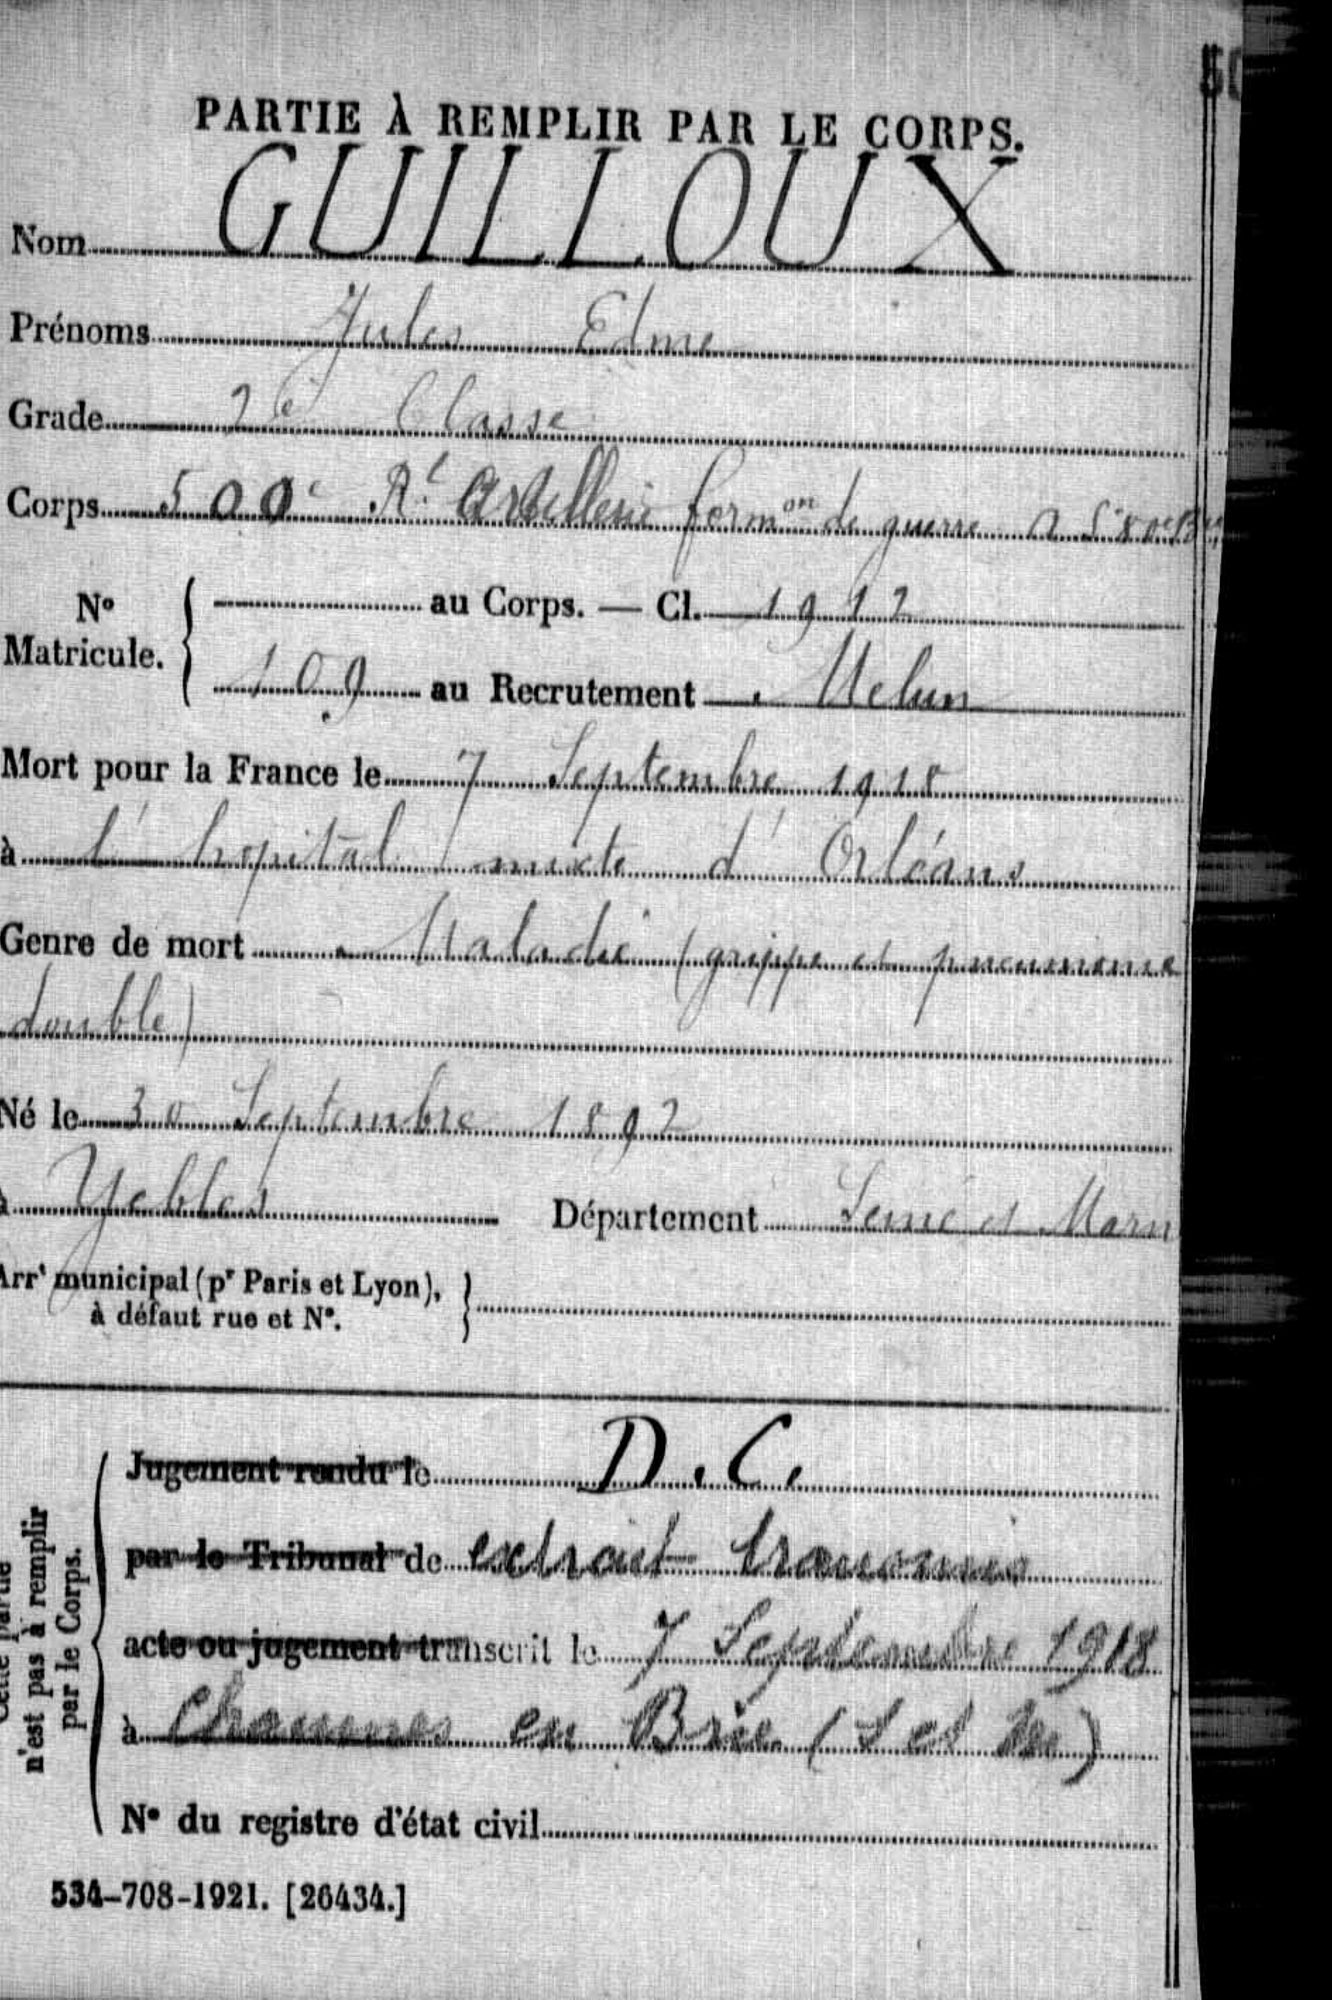 PARTIE À REMPLIR PAR LE CORPS.
Nom GUILLOUX
Prénoms Jules Edme
Grade 2e Classe
Corps 500e Rt Artillerie formon de guerre A. S.
No Matricule. { au Corps. — Cl. 1912
109 au Recrutement Melun
Mort pour la France le 7 Septembre 1918
à l'hopital mixte d'Orléans
Genre de mort Maladie (grippe et pneumonie
double)
Né le 30 Septembre 1892
à Yebles Département Seine et Marn
Arrt municipal (pr Paris et Lyon), à défaut rue et No. }
Cette partie n'est pas à remplir par le Corps.
Jugement rendu le D.C.
par le Tribunal de extrait transmis
acte ou jugement transcrit le 7 Septembre 1918
à Chaumes en Brie (S et M)
No du registre d'état civil
534-708-1921. [26434.]